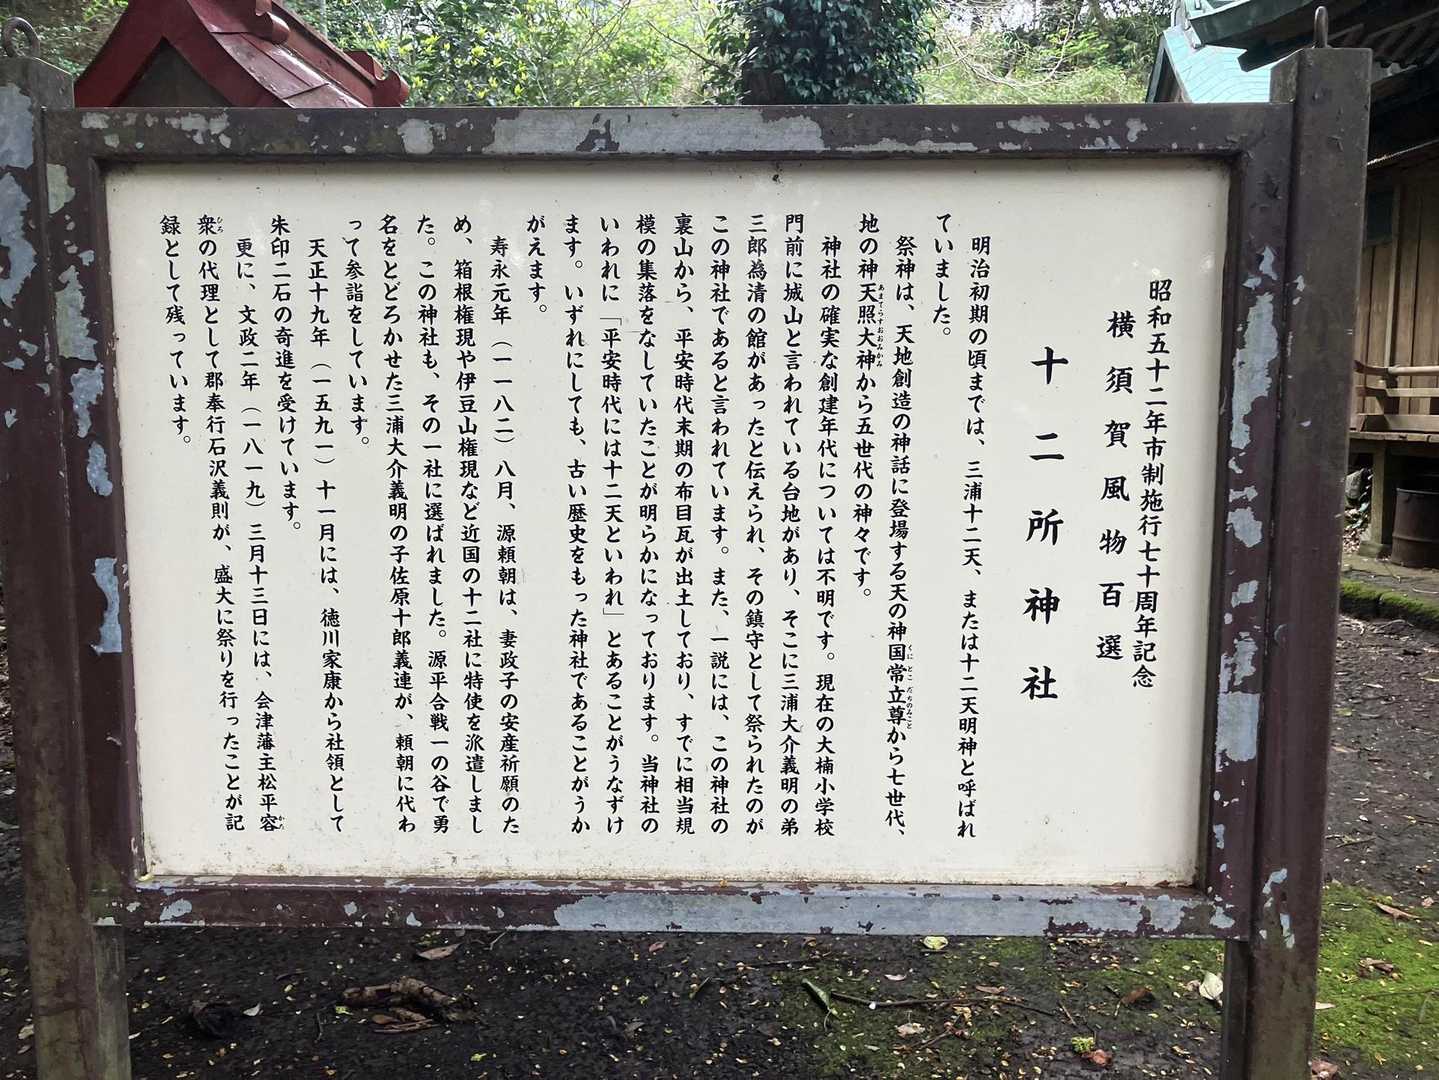 昭和五十二年市制施行七十周年記念
横須賀風物百選
十二所神社
明治初期の頃までは、三浦十二天、または十二天明神と呼ばれ
ていました。
祭神は、天地創造の神話に登場する天の神国常立尊から七世代、
地の神天照大神から五世代の神々です。
神社の確実な創建年代については不明です。現在の大楠小学校
門前に城山と言われている台地があり、そこに三浦大介義明の弟
三郎為清の館があったと伝えられ、その鎮守として祭られたのが
この神社であると言われています。また、一説には、この神社の
裏山から、平安時代末期の布目瓦が出土しており、すでに相当規
模の集落をなしていたことが明らかになっております。当神社の
いわれに「平安時代には十二天といわれ」とあることがうなずけ
ます。いずれにしても、古い歴史をもった神社であることがうか
がえます。
寿永元年（一一八二）八月、源頼朝は、妻政子の安産祈願のた
め、箱根権現や伊豆山権現など近国の十二社に特使を派遣しまし
た。この神社も、その一社に選ばれました。源平合戦一の谷で勇
名をとどろかせた三浦大介義明の子佐原十郎義連が、頼朝に代わ
って参詣をしています。
天正十九年（一五九一）十一月には、徳川家康から社領として
朱印二石の奇進を受けています。
更に、文政二年（一八一九）三月十三日には、会津藩主松平容
衆の代理として郡奉行石沢義則が、盛大に祭りを行ったことが記
録として残っています。